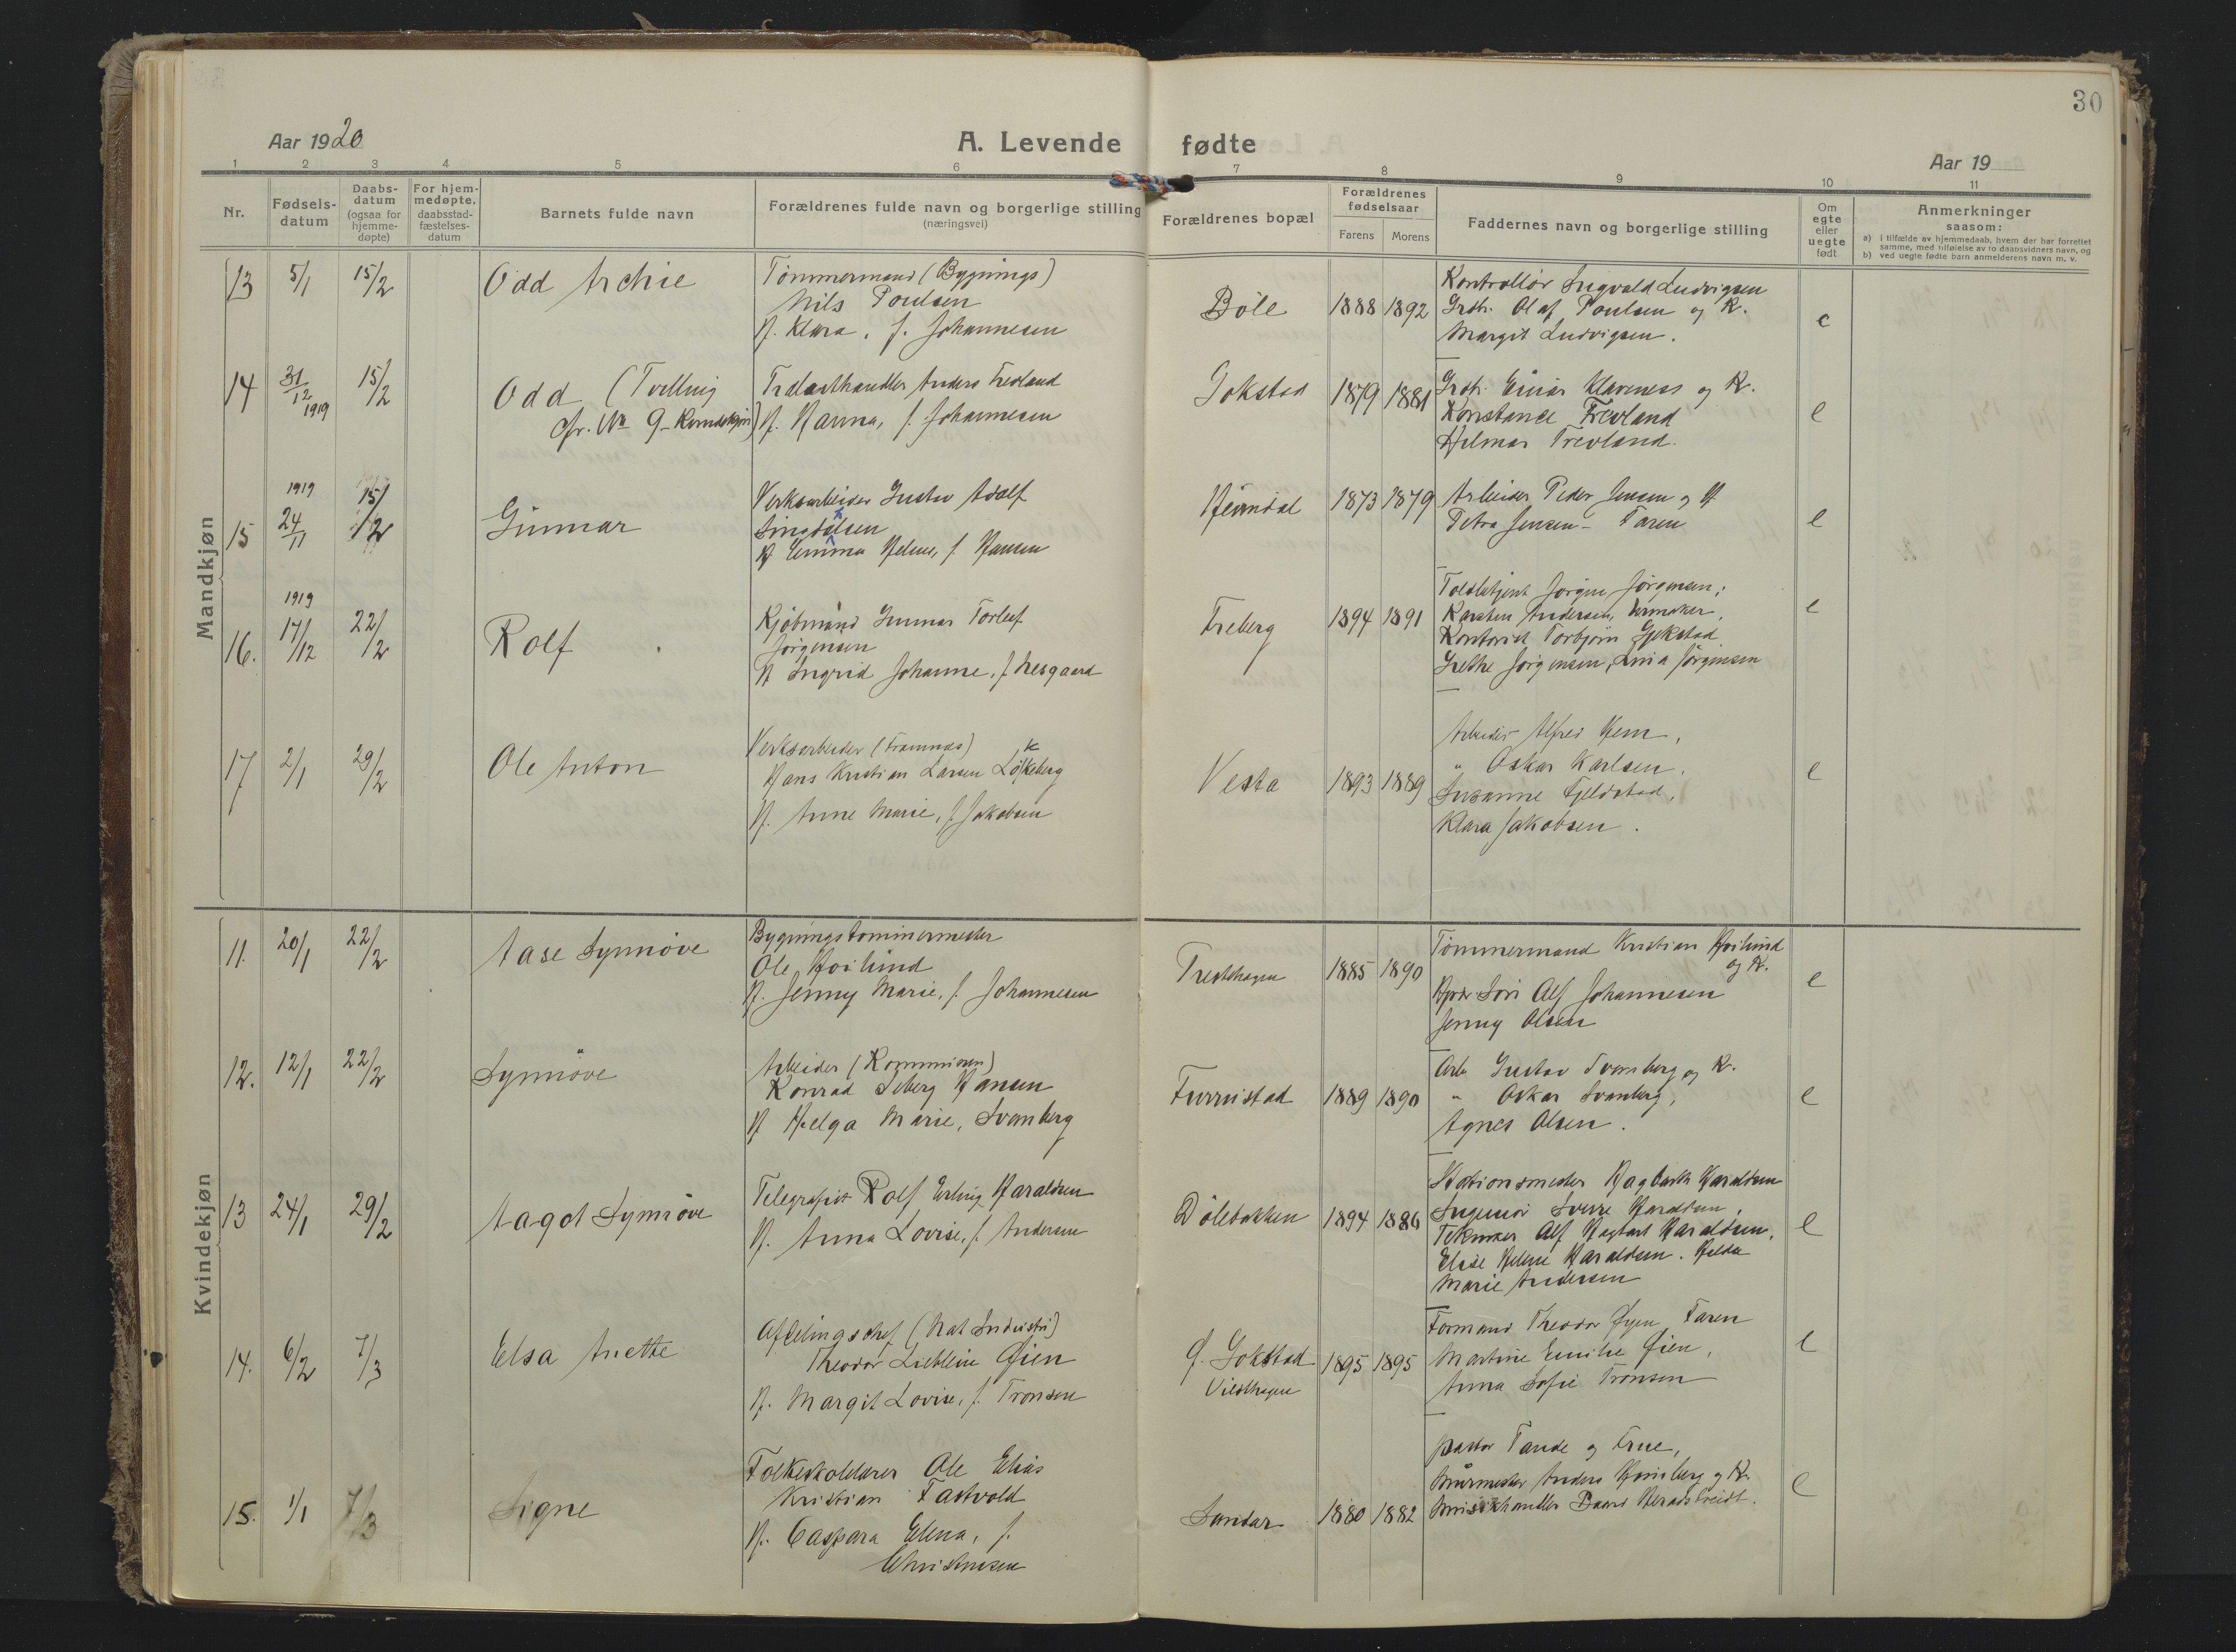 30
Aar 1920
A. Levende fødte
Aar 19
1 2 3 4 5 6 7 8 9 10 11
Nr.
Fødsels-
datum
Daabs-
datum
(ogsaa for
hjemme-
døpte)
For hjem-
medøpte.
daabsstad-
fæstelses-
datum
Barnets fulde navn
Forældrenes fulde navn og borgerlige stilling
(næringsvei)
Forældrenes bopæl
Forældrenes
fødselsaar
Farens Morens
Faddernes navn og borgerlige stilling
Om
egte
eller
uegte
født
Anmerkninger
saasom:
a) i tilfælde av hjemmedaab, hvem der har forrettet
samme, med tilføielse av to daabsvidners navn, og
b) ved uegte fødte barn anmelderens navn m. v.
Mandkjøn
13 5/1 15/2 Odd Archie
Tömmermand (Bygnings)
Nils Poulsen
H. Klara, f. Johannesen
Böle 1888 1892
Kontrollör Sigvald Ludvigsen
Grdr. Olaf Poulsen og K.
Margit Ludvigsen.
e
14 31/12 1919 15/2 Odd (Tvilling
cfr. No 9 - Kvindekjøn)
Trælasthandler Anders Trevland
H. Hanna, f. Johannesen
Gokstad 1879 1881
Grdr. Einar Klaveness og K.
Konstance Trevland
Hilmar Trevland.
e
15 1919 24/11 15/2 Gunnar
Verksarbeider Gustav Adolf
Singdalsen
H. Emma Helene, f. Hansen
Heimdal 1873 1879
Arbeider Peder Jensen og H
Petra Jensen - Faren
e
16. 1919 17/12 22/2 Rolf
Kjöbmand Gunnar Torleif
Jörgensen
H Ingrid Johanne, f. Nesgaard
Freberg 1894 1891
Toldbetjent Jörgen Jörgensen;
Karsten Andersen, urmaker,
Kontorist Torbjörn Gjekstad
Grethe Jörgensen, Lina Jörgensen
e
17 2/1 29/2 Ole Anton
Verksarbeider (Framnæs)
Hans Kristian Larsen Lökkeberg
H. Anne Marie, f. Jakobsen
Vesta 1893 1889
Arbeider Alfred Hem,
" Oskar Karlsen.
Susanne Fjeldstad,
Klara Jakobsen.
e
Kvindekjøn
11. 20/1 22/2 Aase Synnöve
Bygningstömmermester
Ole Hoilund
H. Jenny Marie, f. Johannesen
1885 1890
Tömmermand Kristian Hoilund
og K.
Alf Johannesen
Jenny Olsen
e
12. 12/1 22/2 Synnöve
Arbeider (Kommunen)
Konrad Seberg Hansen
H Helga Marie, Svanberg
Furustad 1889 1890
Arb. Gustav Svanberg og K.
" Oskar Svanberg,
Agnes Olsen.
e
13 24/1 29/2 Aagot Synnöve
Telegrafist Rolf Erling Haraldsen
H. Anna Lovise, f. Andersen
Dölebakken 1894 1886
Stationsmester Hagbarth Haraldsen
Ingeniör Sverre Haraldsen,
Tekniker Alf Hagbart Haraldsen,
Elise Helene Haraldsen. Hilda
Marie Andersen
e
14. 6/2 7/3 Elsa Anette
Afdelingschef (Nat. Industri)
Theodor Lieblein Øien
H. Margit Lovise, f. Tronsen
Gokstad
1895 1895
Formand Theodor Øyen Faren
Martine Emilie Øien,
Anna Sofie Tronsen
e
15. 1/1 7/3 Signe
Folkeskolelærer Ole Elias
Kristian Fastvold
H. Caspara Elena, f.
Christensen
Sandar 1880 1882
pastor Tande og Frue,
Murmester Anders og K.
Musikhandler
e